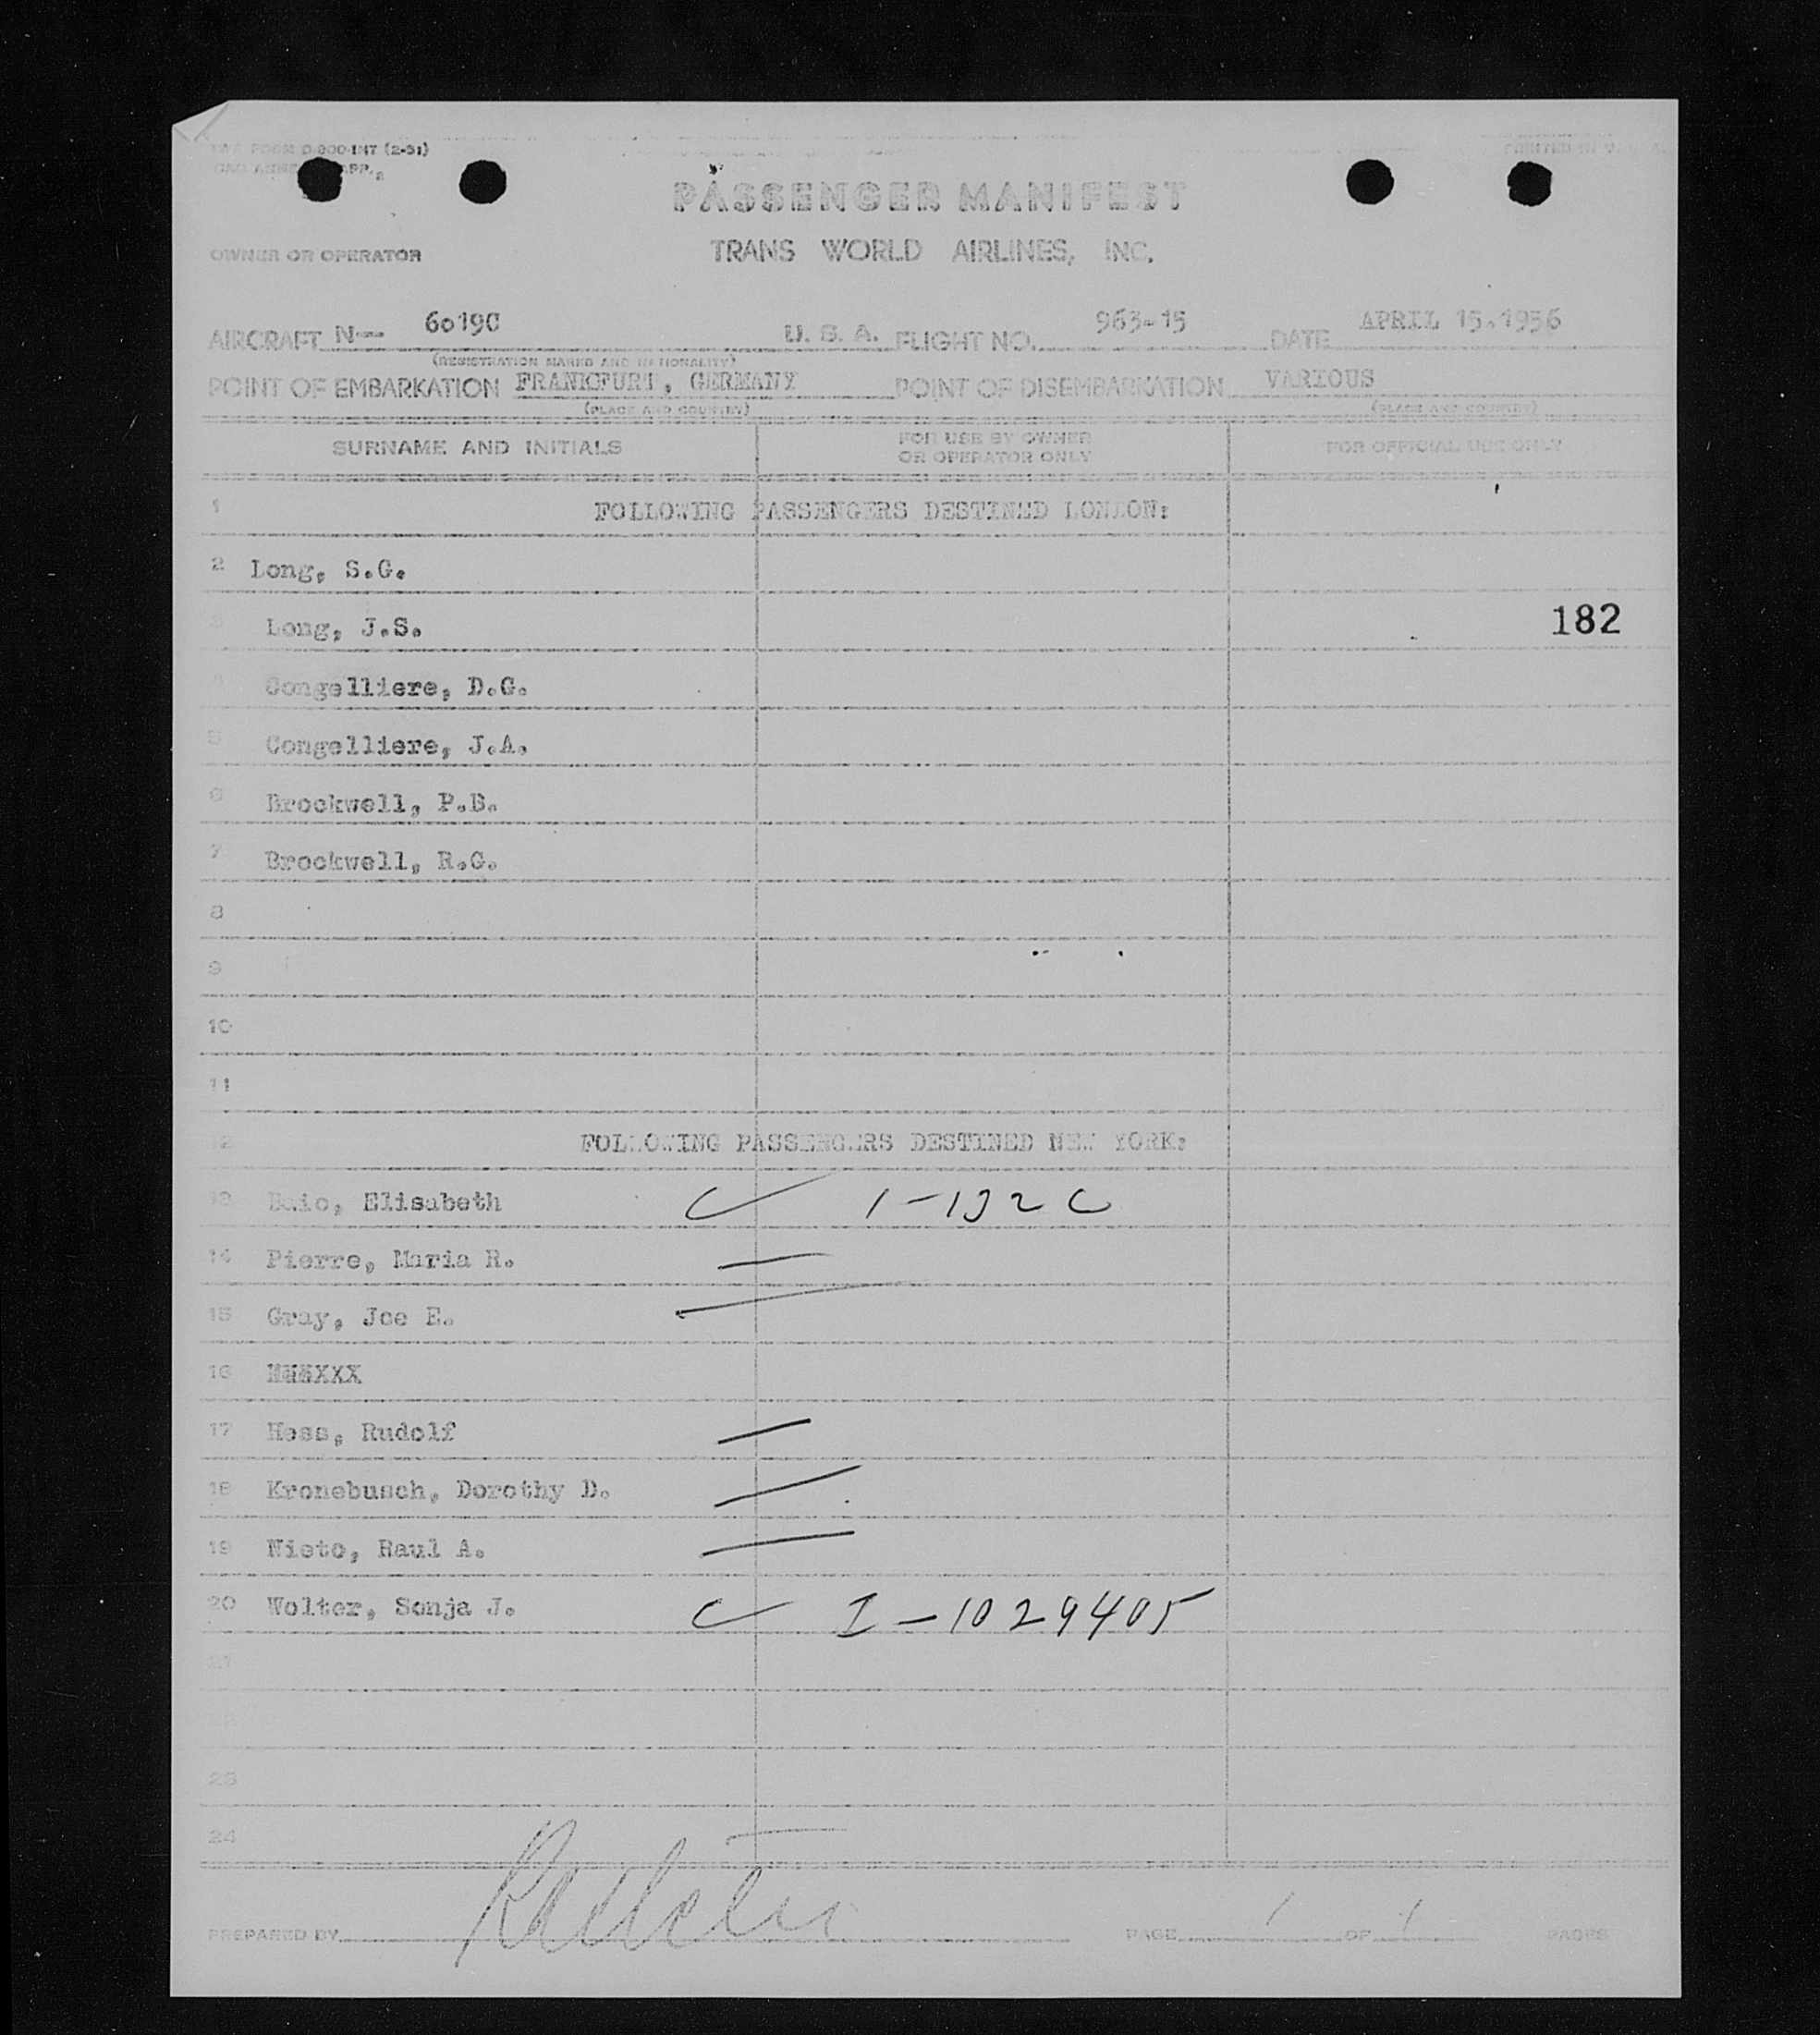 TWA FORM D-800-INT (2-51)
PRINTED IN U. S. A.
APP.
PASSENGER MANIFEST
OWNER OR OPERATOR TRANS WORLD AIRLINES, INC.
AIRCRAFT N-- 6019C U. S. A. FLIGHT NO. 963-15 DATE APRIL 15.1956
(REGISTRATION MARKS AND NATIONALITY)
POINT OF EMBARKATION FRANKFURT, GERMANY POINT OF DISEMBARKATION VARIOUS
(PLACE AND COUNTRY) (PLACE AND COUNTRY)
SURNAME AND INITIALS FOR USE BY OWNER OR OPERATOR ONLY FOR OFFICIAL USE ONLY
1 FOLLOWING PASSENGERS DESTINED LONDON:
2 Long, S.G.
3 Long, J.S. 182
4 Congelliere, D.G.
5 Congelliere, J.A.
6 Brockwell, P.B.
7 Brockwell, R.G.
8
9
10
11
12 FOLLOWING PASSENGERS DESTINED NEW YORK:
13 Baio, Elisabeth 1-192C
14 Pierre, Maria R.
15 Gray, Joe E.
16
17 Hess, Rudolf
18 Kronebusch, Dorothy D.
19 Nieto, Raul A.
20 Wolter, Sonja J. I-1029405
21
23
24
PREPARED BY PAGE 1 OF 1 PAGES